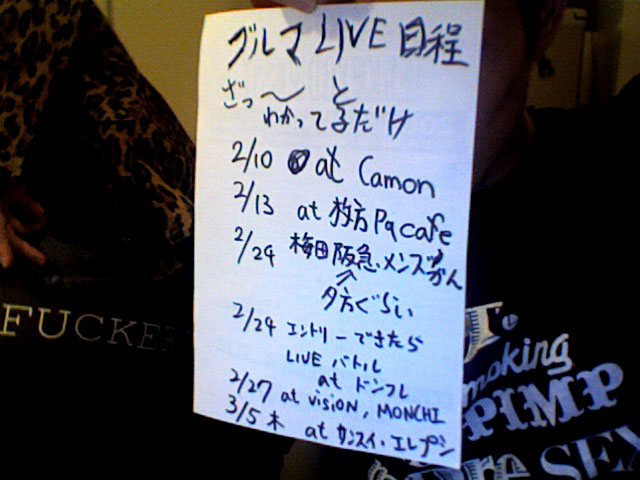 ブルマ LIVE 日程
ざっ〜と
わかってるだけ
2/10 at Camon
2/13 at 枚方 Pq cafe
2/24 梅田阪急メンズかん
夕方ぐらい
2/24 エントリーできたら
LIVE バトル
at ドンフレ
2/27 at VISION, MONCHI
3/5 木 at サンスイ・エレブン
FUCKER
moking
PIMP
SEX